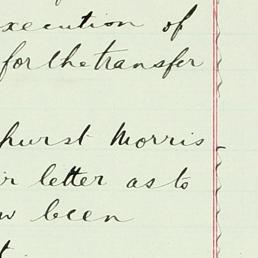 xecution of
for the transfer
hurst Morris
ir letter as to
w been